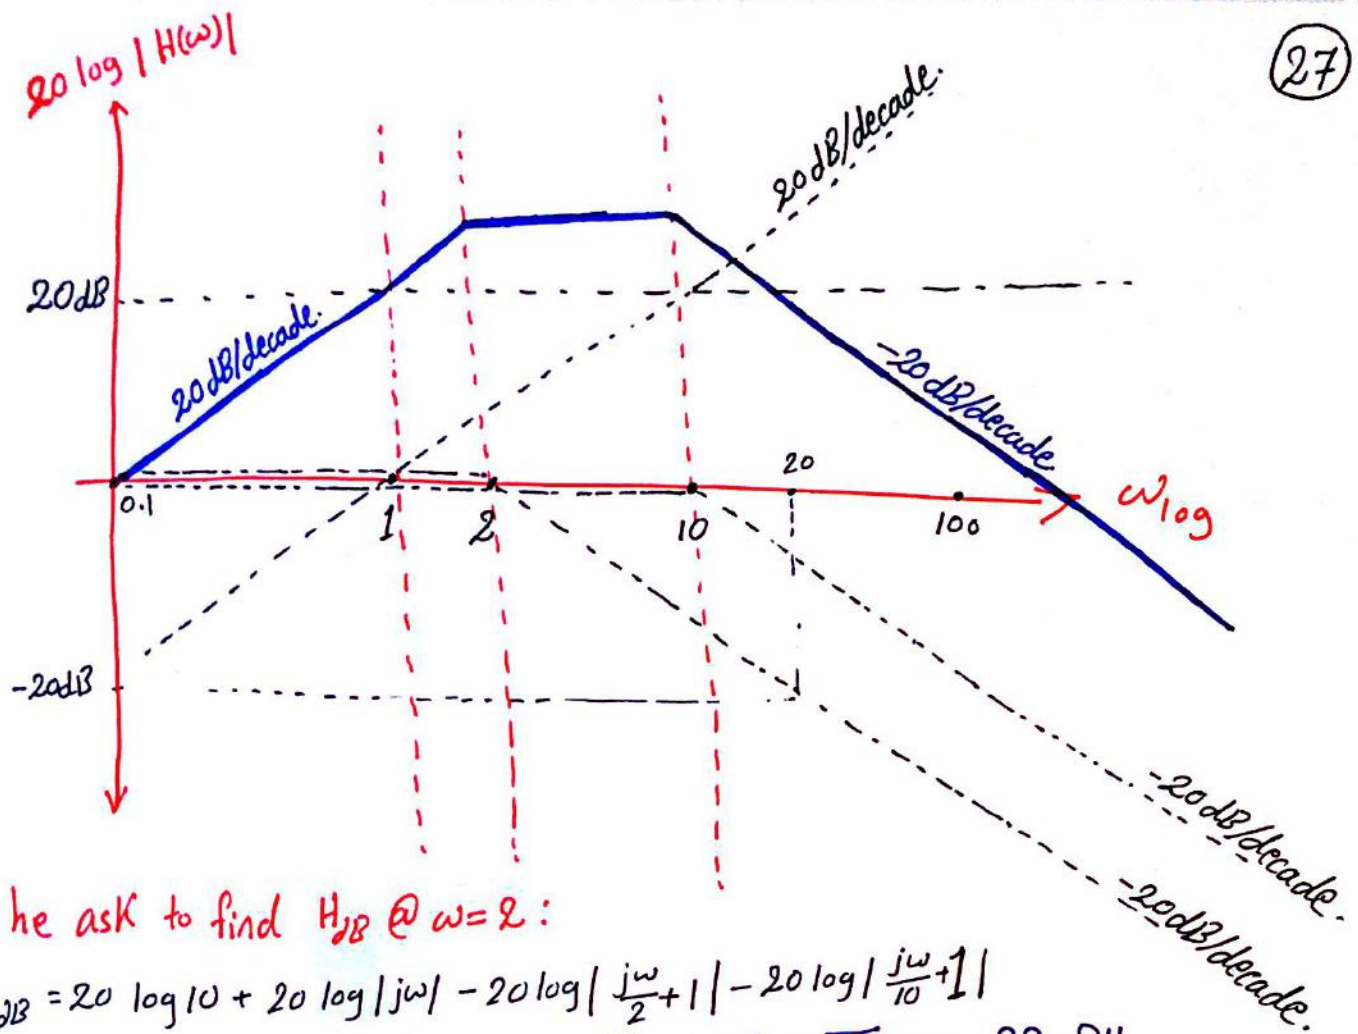 27
20 log | H(ω)|
20dB/decade.
20dB
20dB/decade.
-20dB/decade
0.1
1
2
10
20
100
ω log
-20dB
-20dB/decade.
-20dB/decade.
he ask to find HdB @ ω=2:
dB = 20 log10 + 20 log|jω| - 20log| jω/2 +1| - 20 log| jω/10 +1|